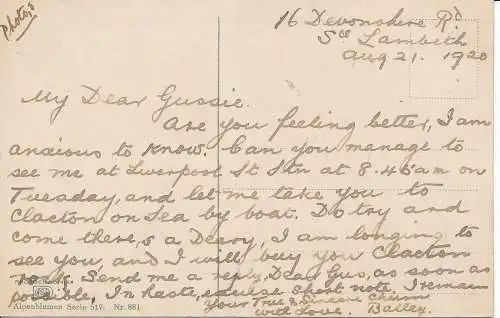 Photo,s
16 Devonshire Rd
Sth Lambeth
Aug 21. 1920
My Dear Gussie.
Are you feeling better, I am
anxious to know. Can you manage to
see me at Liverpool St Stn at 8.45am on
Tuesday, and let me take you to
Clacton on Sea by boat. Do try and
come there,s a Deary, I am longing to
see you, and I will buy you Clacton
rock. Send me a reply, Dear Gus, as soon as
possible, In haste, excuse short note. I remain
Your True & Sincere Chum
with Love. Bailey.
Alpenblumen Serie 517. Nr. 881